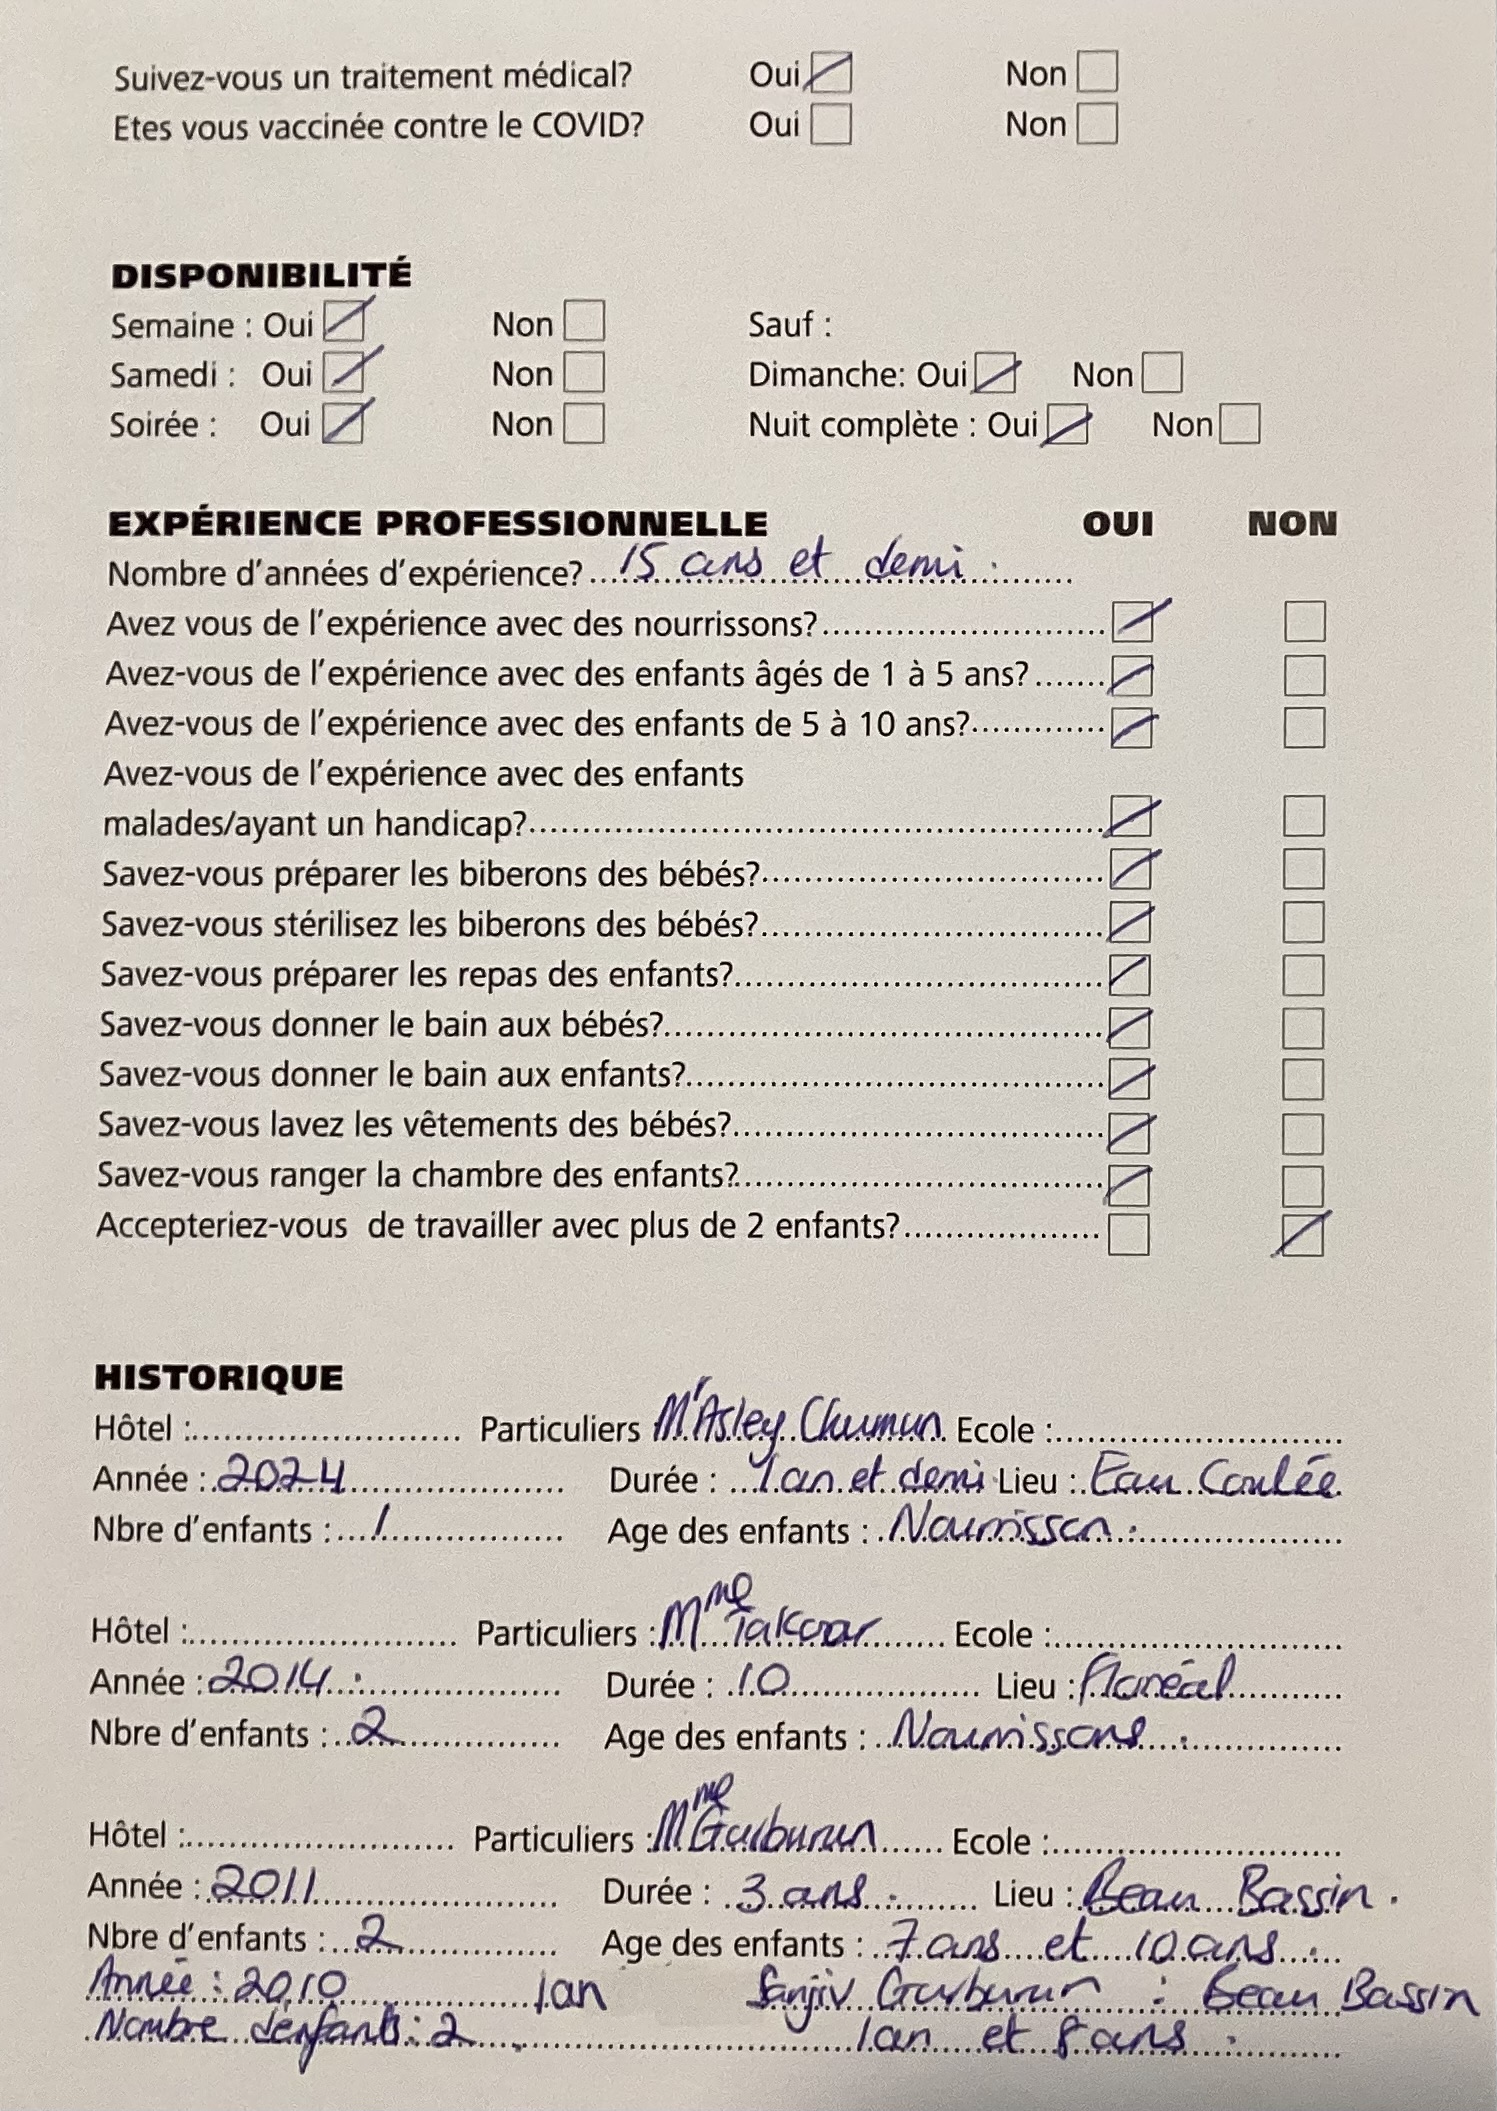 Suivez-vous un traitement médical? Oui Non
Etes vous vaccinée contre le COVID? Oui Non
DISPONIBILITÉ
Semaine : Oui Non Sauf :
Samedi : Oui Non Dimanche: Oui Non
Soirée : Oui Non Nuit complète : Oui Non
EXPÉRIENCE PROFESSIONNELLE OUI NON
Nombre d'années d'expérience? 15 ans et demi.
Avez vous de l'expérience avec des nourrissons?
Avez-vous de l'expérience avec des enfants âgés de 1 à 5 ans?
Avez-vous de l'expérience avec des enfants de 5 à 10 ans?
Avez-vous de l'expérience avec des enfants
malades/ayant un handicap?
Savez-vous préparer les biberons des bébés?
Savez-vous stérilisez les biberons des bébés?
Savez-vous préparer les repas des enfants?
Savez-vous donner le bain aux bébés?
Savez-vous donner le bain aux enfants?
Savez-vous lavez les vêtements des bébés?
Savez-vous ranger la chambre des enfants?
Accepteriez-vous de travailler avec plus de 2 enfants?
HISTORIQUE
Hôtel : Particuliers Mr Asley Chumun Ecole :
Année : 2024 Durée : 1 an et demi Lieu : Eau Coulée
Nbre d'enfants : 1 Age des enfants : Nourrisson.
Hôtel : Particuliers : Mme Takoor Ecole :
Année : 2014. Durée : 10 Lieu : Floréal
Nbre d'enfants : 2 Age des enfants : Nourrissons.
Hôtel : Particuliers : Mme Ecole :
Année : 2011 Durée : 3 ans. Lieu : Beau Bassin.
Nbre d'enfants : 2 Age des enfants : 7 ans et 10 ans.
Année : 2010 1 an Sanjiv : Beau Bassin
Nombre d'enfants : 2 1 an et 8 ans.